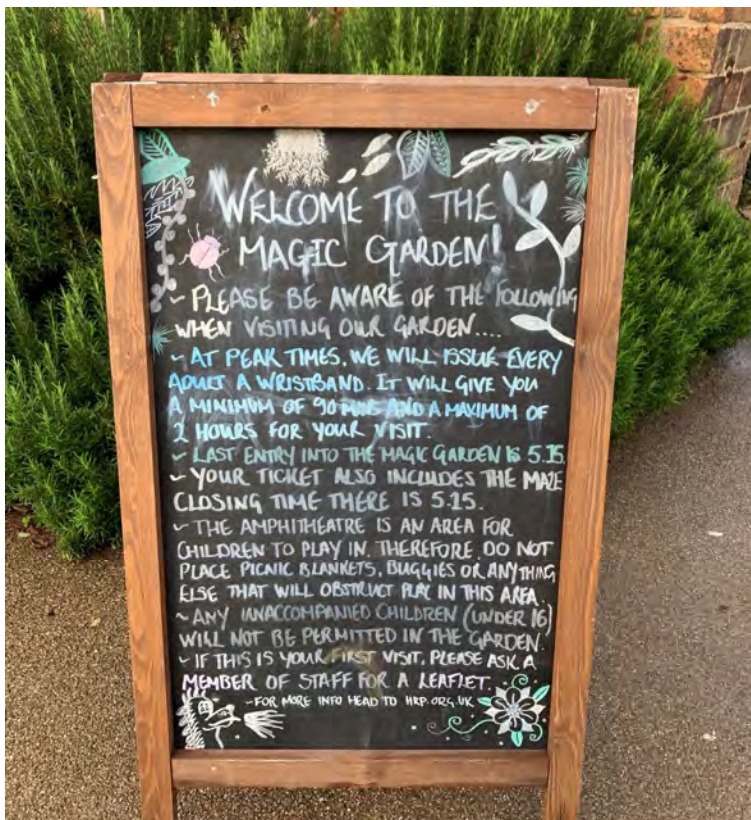 WELCOME TO THE
MAGIC GARDEN!
~ PLEASE BE AWARE OF THE FOllOWING
WHEN VISITING OUR GARDEN....
~ AT PEAK TIMES, WE WILL ISSUE EVERY
ADULT A WRISTBAND. IT WILL GIVE YOU
A MINIMUM OF 90 MINS AND A MAXIMUM OF
2 HOURS FOR YOUR VISIT.
~ LAST ENTRY INTO THE MAGIC GARDEN IS 5.15.
~ YOUR TICKET ALSO INCLUDES THE MAZE
CLOSING TIME THERE IS 5.15.
~ THE AMPHITHEATRE IS AN AREA FOR
CHILDREN TO PLAY IN. THEREFORE DO NOT
PLACE PICNIC BLANKETS, BUGGIES OR ANYTHING
ELSE THAT WILL OBSTRUCT PLAY IN THIS AREA.
~ ANY UNACCOMPANIED CHILDREN (UNDER 16)
WILL NOT BE PERMITTED IN THE GARDEN.
~ IF THIS IS YOUR FIRST VISIT, PLEASE ASK A
MEMBER OF STAFF FOR A LEAFLET.
~FOR MORE INFO HEAD TO HRP.ORG.UK